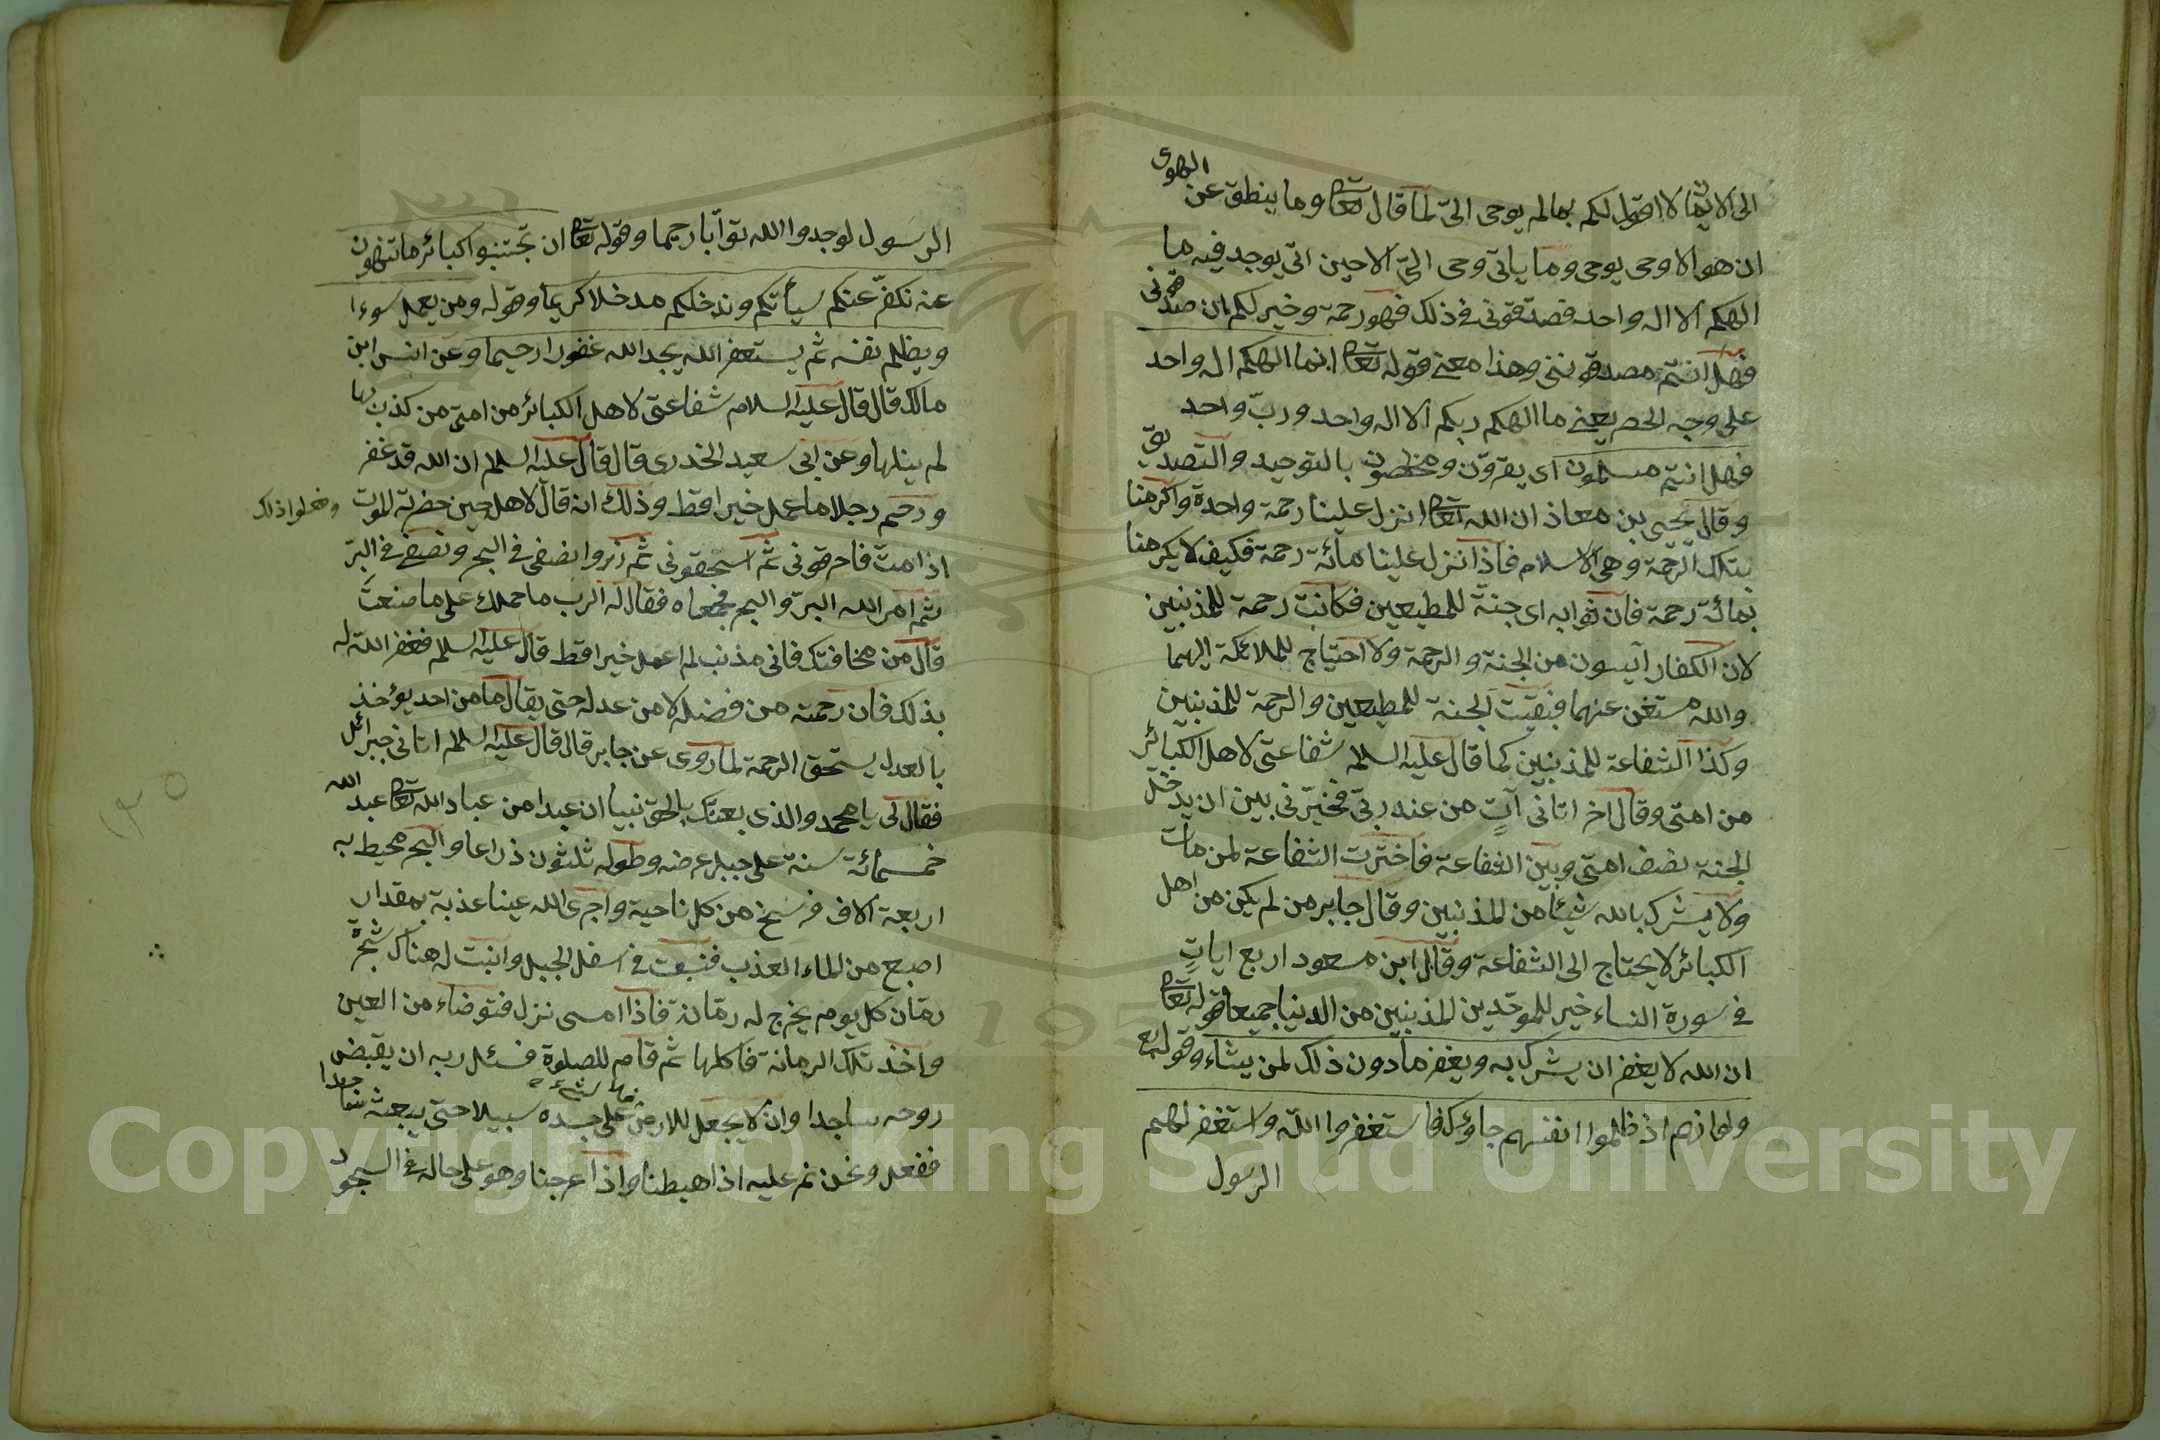 الى الايتما لا اقول لكم بما لم يوحى الىّ لما قال تعا وما ينطق عن الهوى
ان هو الا وحى يوحى وما ياتى وحى الىّ الا حين انى يوجد فيه ما
الهكم الا اله واحد فصدّقونى فى ذلك فهو رحمة وخير لكم ان صدّقتمونى
فهل انتم مصدقوننى وهذا معنى قوله تعا انما الهكم اله واحد
على وجه الحصر يعنى ما الهكم ربكم الا اله واحد وربّ واحد
فهل انتم مسلمون اى يقرون ومخلصون بالتوحيد والتصديق
وقال يحيى بن معاذ ان الله تعا انزل علينا رحمة واحدة واكرمنا
بتلك الرحمة وهى الاسلام فاذا انزل علينا مائة رحمة فكيف لا يكرمنا
بمائة رحمة فان ثوابه اى جنة للمطيعين فكانت رحمة للمذنبين
لان الكفار آيسون من الجنة والرحمة ولا احتياج للملائكة اليهما
والله مستغن عنهما فبقيت الجنة للمطيعين والرحمة للمذنبين
وكذا الشفاعة للمذنبين كما قال عليه السلام شفاعتى لاهل الكبائر
من امتى وقال اخر اتانى آتٍ من عند ربّى فخيّرنى بين ان يدخل
الجنة نصف امتى وبين الشفاعة فاخترت الشفاعة لمن مات
ولا يشرك بالله شيئا من المذنبين وقال جابر من لم يكن من اهل
الكبائر لا يحتاج الى الشفاعة وقال ابن مسعود اربع اياتٍ
فى سورة النساء خير للموحّدين المذنبين من الدنيا جميعا قوله تعا
ان الله لا يغفر ان يشرك به ويغفر ما دون ذلك لمن يشاء وقوله تع
ولو انهم اذ ظلموا انفسهم جاؤك فاستغفروا الله واستغفر لهم
الرسول
الرسول لوجدوا الله توّابا رحيما وقوله تعا ان تجتنبوا كبائر ما تنهون
عنه نكفّر عنكم سيأتكم وندخلكم مدخلا كريما وقوله ومن يعمل سوءا
ويظلم نفسه ثم يستغفر الله يجد الله غفورا رحيما وعن انس ابن
مالك قال قال عليه السلام شفاعتى لاهل الكبائر من امتى من كذب بها
لم ينلها وعن ابى سعيد الخدرى قال قال عليه السلام ان الله قد غفر
ورحم رجلا ما عمل خيرا قط وذلك انه قال لاهله حين حضرته الموت
وفعلوا ذلك
اذا مت فاحرقونى ثم اسحقونى ثم ذروا نصفى فى البحر ونصفى فى البرّ
ثم امر الله البرّ والبحر فجمعاه فقال له الرب ما حملك على ما صنعت
قال من مخافتك فانى مذنب لم اعمل خيرا قط قال عليه السلام فغفر الله له
بذلك فان رحمته من فضله لا من عدله حتى يقال ما من احد يؤخذ
بالعدل يستحق الرحمة لما روى عن جابر قال قال عليه السلام اتانى جبرائل
فقال لى يا محمد والذى بعثك بالحق نبيا ان عبدا من عباد الله تعا عبد الله
خمسمائة سنة على جبل عرضه وطوله ثلثون ذراعا والبحر محيط به
اربعة الاف فرسخ من كل ناحية واجرى الله عينا عذبة بمقدار
اصبع من الماء العذب فنبعت فى اسفل الجبل وانبت له هناك شجرة
رمّان كل يوم يخرج له رمّانة فاذا امسى نزل فتوضاء من العين
واخذ تلك الرمانة فاكلها ثم قام للصلوة فسئل ربه ان يقبض
روحه ساجدا وان لا يجعل للارض على جسده سبيلا حتى يبعثه ساجدا
ففعل ونحن نمر عليه اذا هبطنا واذا عرجنا وهو على حاله فى السجود